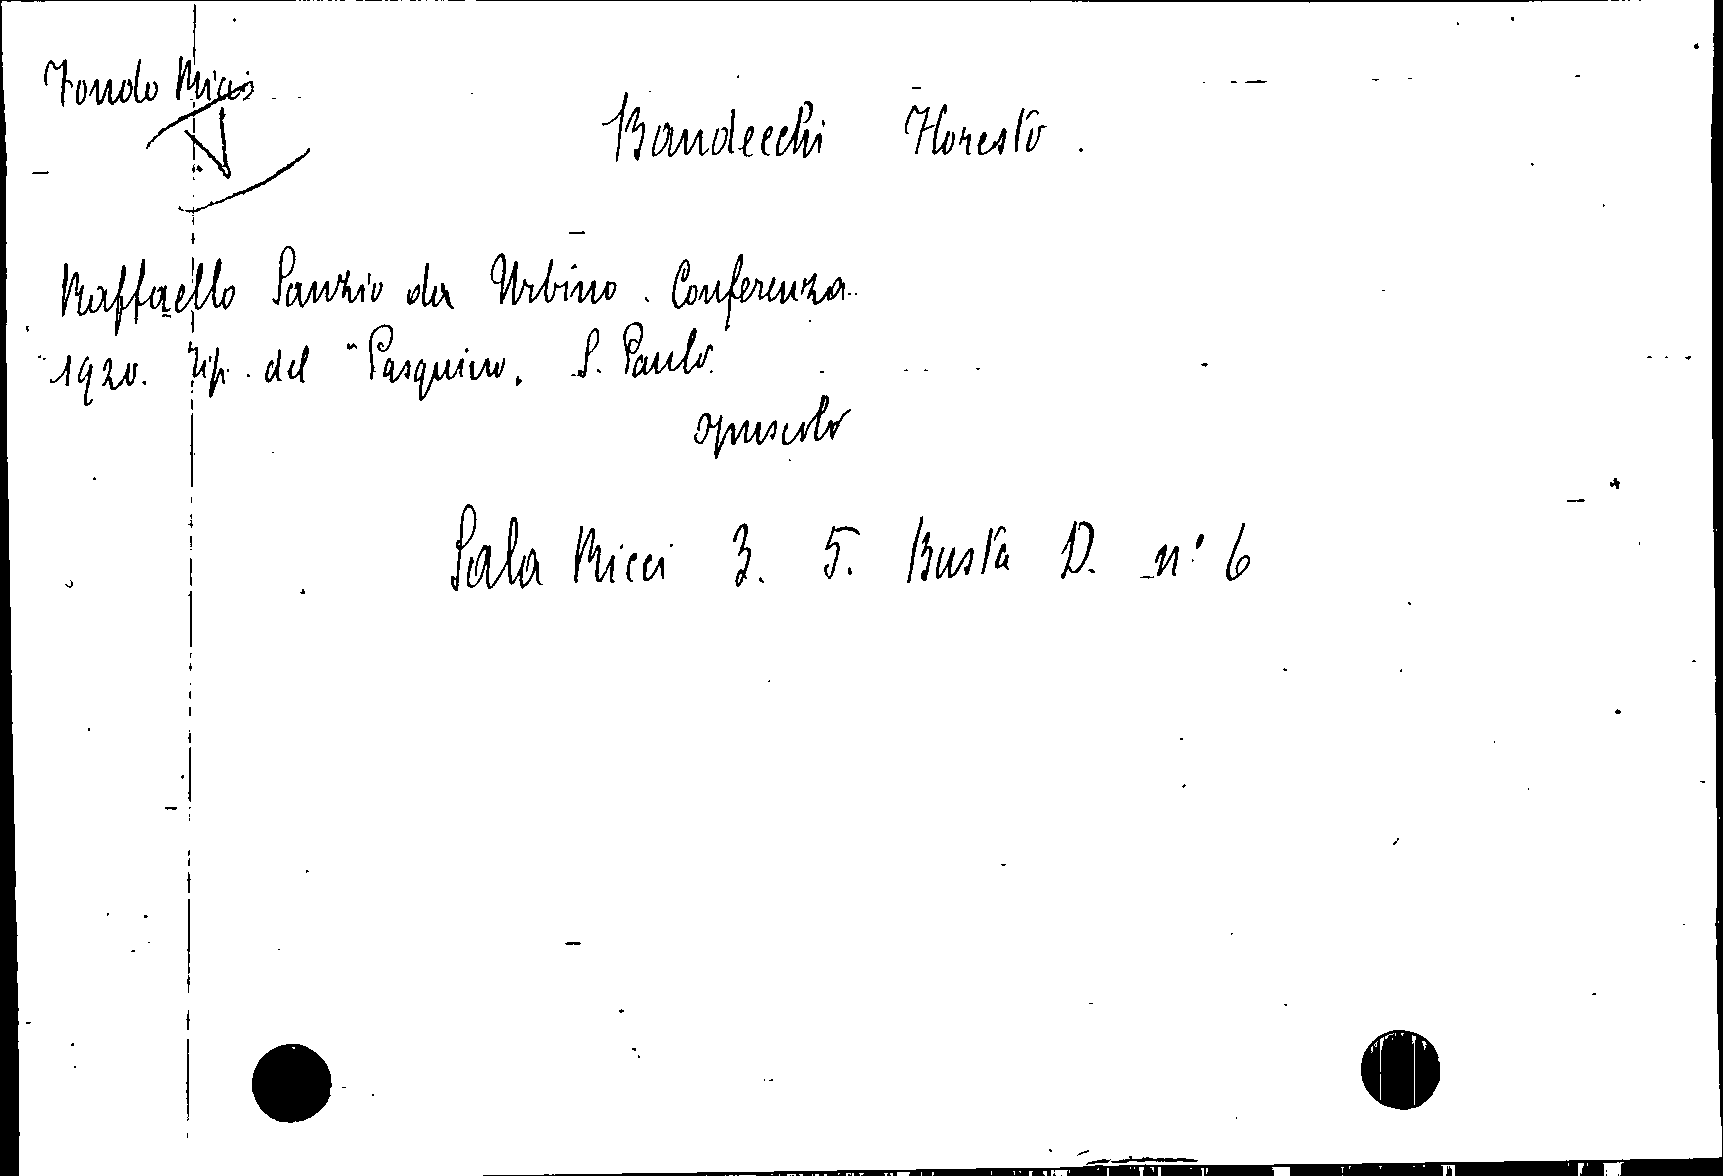 Fondo Ricci
Bandecchi Floresto.
Raffaello Sanzio da Urbino. Conferenza
1920. Tip. del "Pasquino, S. Paulo
opuscolo
Sala Ricci 3. 5. Busta D. n° 6